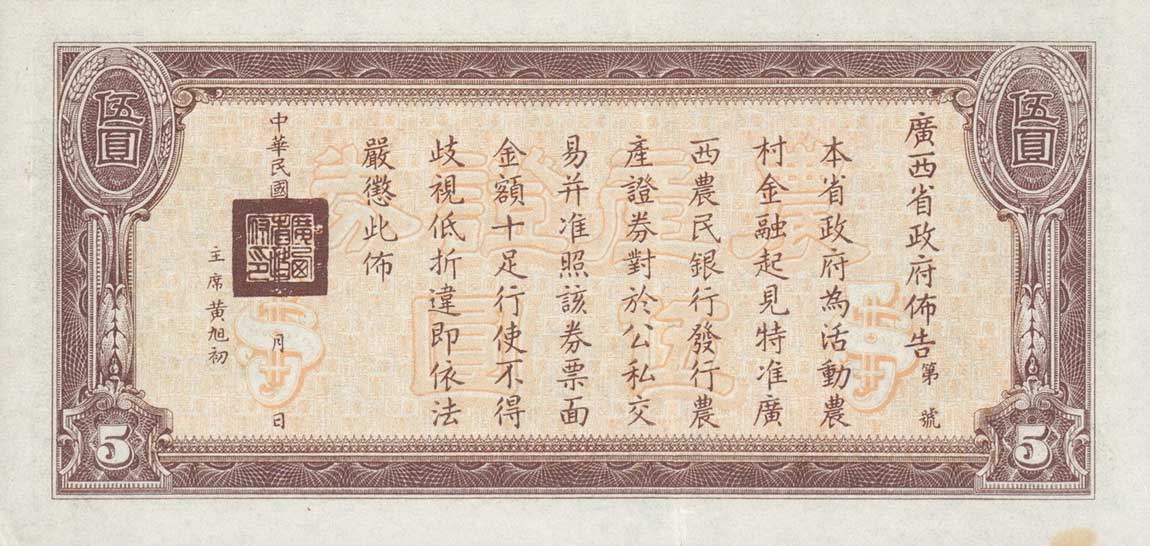 廣西省政府佈告第 號
本省政府為活動農
村金融起見特准廣
西農民銀行發行農
產證券對於公私交
易并准照該券票面
金額十足行使不得
歧視低折違即依法
嚴懲此佈
中華民國 月 日
主席黃旭初
廣西省政府印
伍圓
伍圓
農產證券
伍圓
$
$
5
5